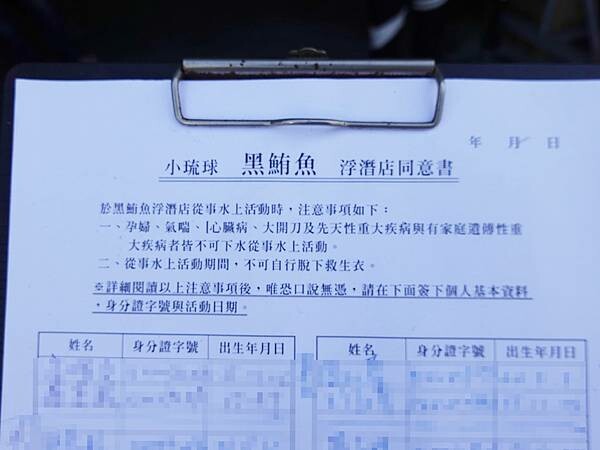 年 月 日
小琉球 黑鮪魚 浮潛店同意書
於黑鮪魚浮潛店從事水上活動時，注意事項如下：
一、孕婦、氣喘、心臟病、大開刀及先天性重大疾病與有家庭遺傳性重
大疾病者皆不可下水從事水上活動。
二、從事水上活動期間，不可自行脫下救生衣。
※詳細閱讀以上注意事項後，唯恐口說無憑，請在下面簽下個人基本資料
，身分證字號與活動日期。
姓名 身分證字號 出生年月日 姓名 身分證字號 出生年月日